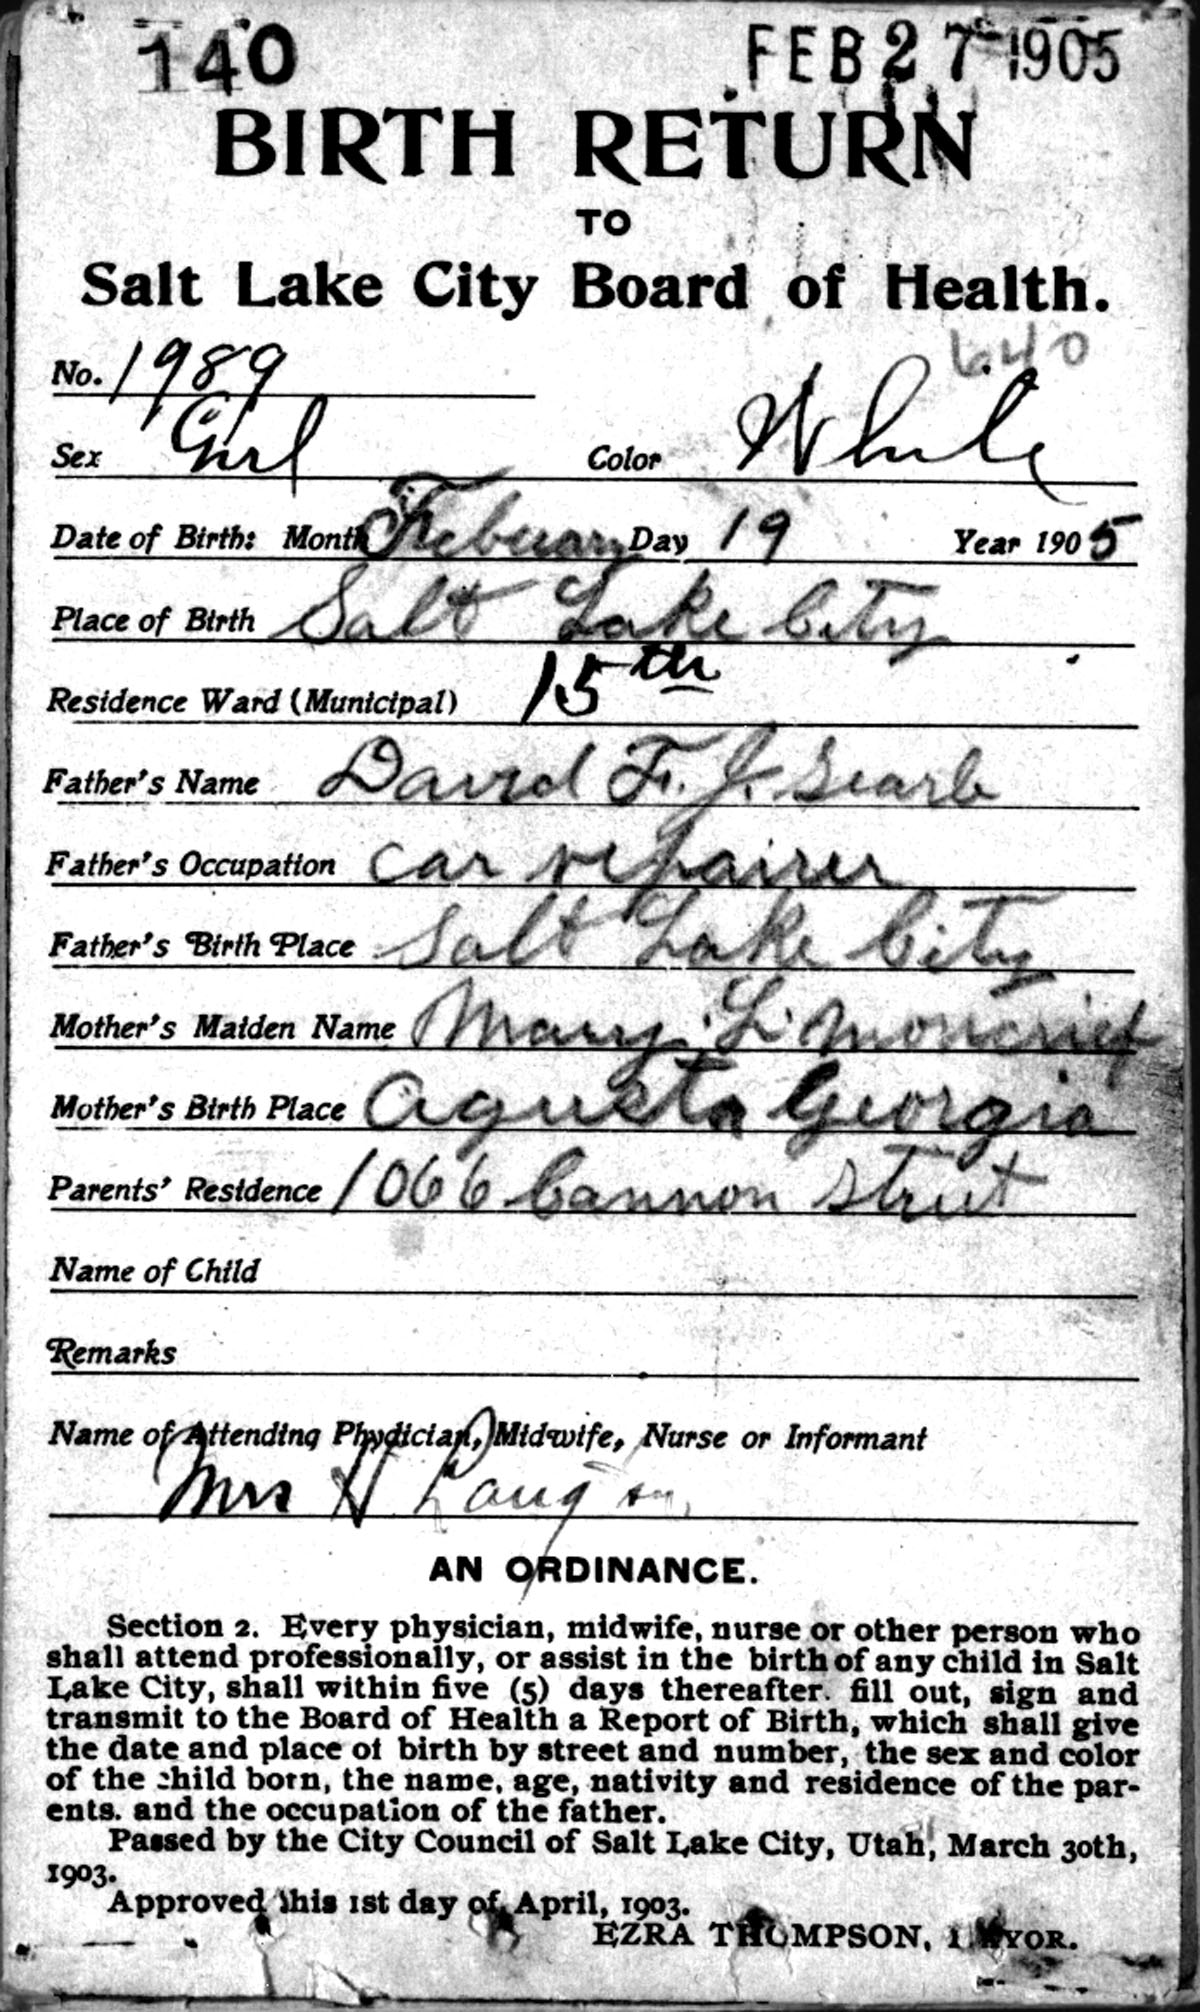 140 FEB 27 1905
BIRTH RETURN
TO
Salt Lake City Board of Health.
640
No. 1989
Sex Girl Color White
Date of Birth: Month Febuary Day 19 Year 1905
Place of Birth Salt Lake City
Residence Ward (Municipal) 15th
Father's Name David F. J. Searle
Father's Occupation car repairer
Father's Birth Place Salt Lake City
Mother's Maiden Name Mary L. Moncrief
Mother's Birth Place Agusta Georgia
Parents' Residence 1066 Cannon Street
Name of Child
Remarks
Name of Attending Physician, Midwife, Nurse or Informant
Mrs H
AN ORDINANCE.
Section 2. Every physician, midwife, nurse or other person who
shall attend professionally, or assist in the birth of any child in Salt
Lake City, shall within five (5) days thereafter fill out, sign and
transmit to the Board of Health a Report of Birth, which shall give
the date and place of birth by street and number, the sex and color
of the child born, the name, age, nativity and residence of the par-
ents. and the occupation of the father.
Passed by the City Council of Salt Lake City, Utah, March 30th,
1903.
Approved this 1st day of April, 1903.
EZRA THOMPSON, MAYOR.